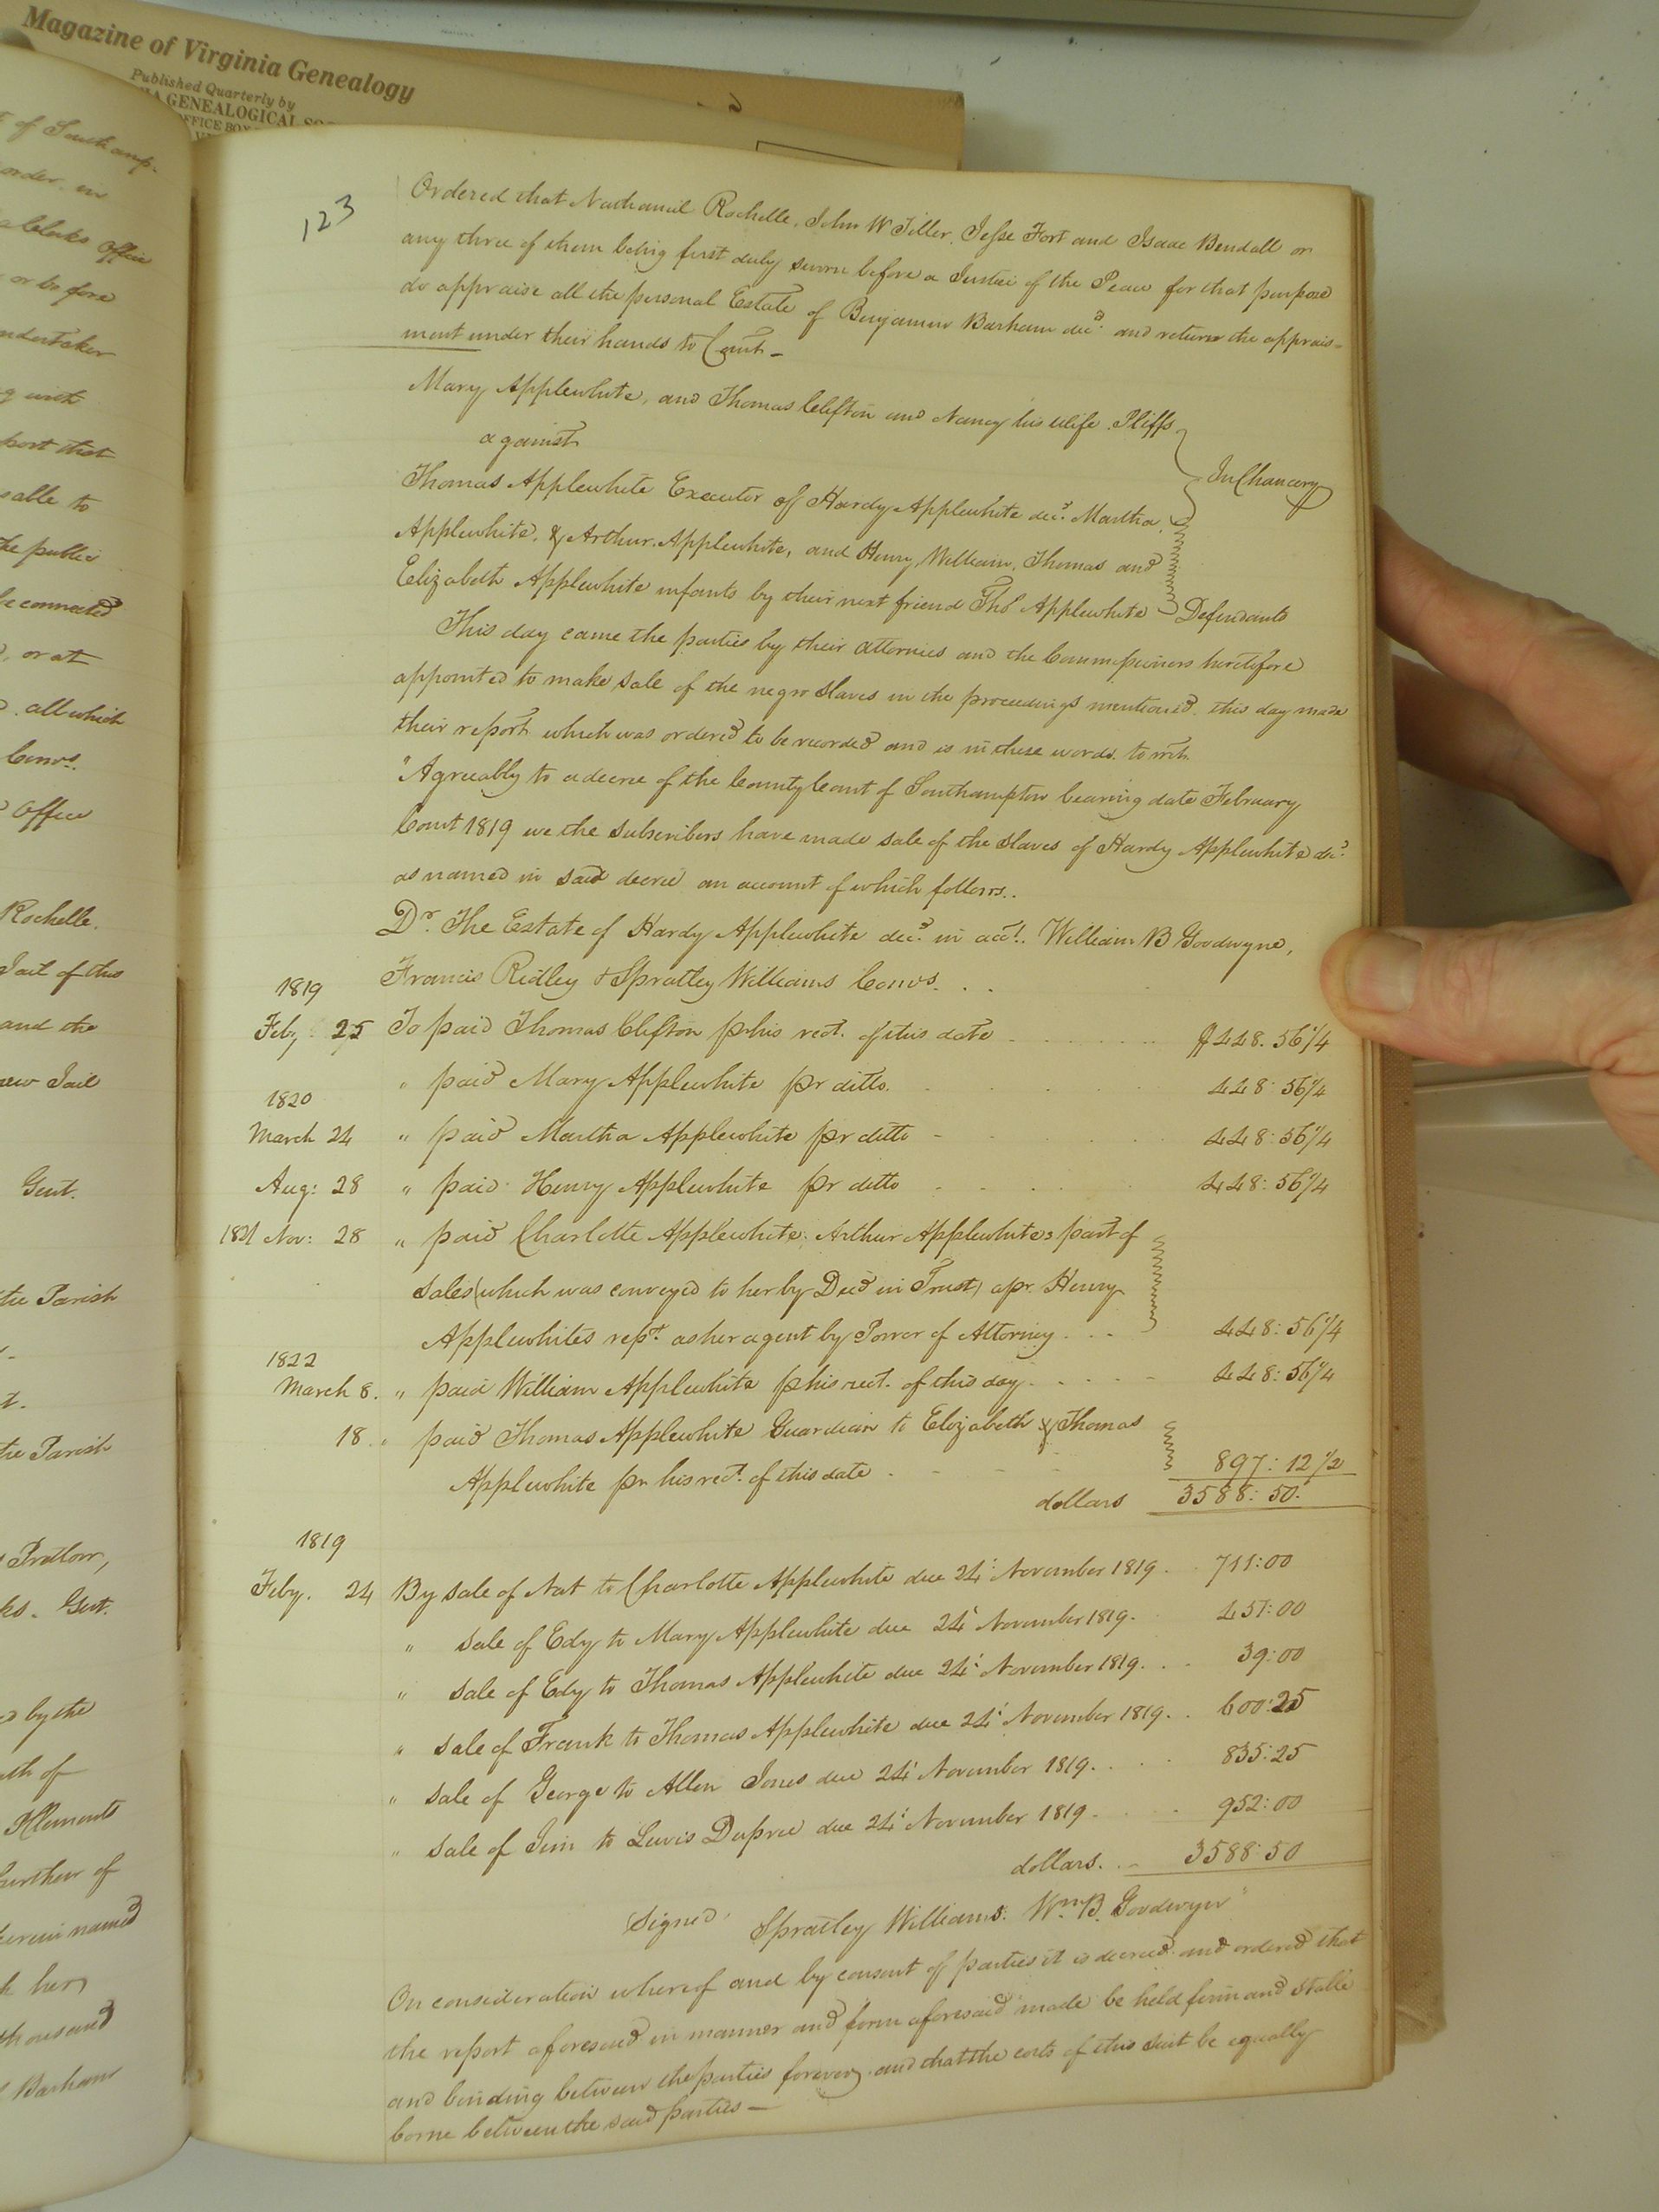 Magazine of Virginia Genealogy
Published Quarterly by
GENEALOGICAL
OFFICE BOX
of Southamp-
order in
Clerks Office
or before
undertaker
with
port that
able to
the public
be connected
or at
all which
Comrs.
Office
Rochelle.
Jail of this
and the
new Jail
Gent.
the Parish
the Parish
Pretlow,
Gent.
by the
Clements
further of
herein named
her
thousand
Barham
123
Ordered that Nathaniel Rochelle, John W Tiller, Jesse Fort and Isaac Bendall or
any three of them being first duly sworn before a Justice of the Peace for that purpose
do appraise all the personal Estate of Benjamin Barham decd. and return the apprais-
ment under their hands to Court -
Mary Applewhite, and Thomas Clifton and Nancy his Wife. Pltffs
against
In Chancery
Thomas Applewhite Executor of Hardy Applewhite decd. Martha
Applewhite, & Arthur Applewhite, and Henry, William, Thomas and
Elizabeth Applewhite infants by their next friend Thos Applewhite - Defendants
This day came the parties by their attornies and the Commissioners heretofore
appointed to make sale of the negro slaves in the proceedings mentioned. this day made
their report which was ordered to be recorded and is in these words. to wit.
"Agreeably to a decree of the County Court of Southampton bearing date February
Court 1819 we the subscribers have made sale of the slaves of Hardy Applewhite decd.
as named in said decree an account of which follows..
Dr. The Estate of Hardy Applewhite decd. in acct. William B Goodwyne,
Francis Ridley & Spratley Williams Comrs. . .
1819
Feby 25 To paid Thomas Clifton pr his rect. of this date $448. 56 1/4
" paid Mary Applewhite pr ditto. 448: 56 1/4
1820
March 24 " paid Martha Applewhite pr ditto - 448: 56 1/4
Aug: 28 " paid Henry Applewhite pr ditto 448: 56 1/4
1821 Nov: 28 " paid Charlotte Applewhite, Arthur Applewhites part of
sales (which was conveyed to her by Deed in Trust) apr. Henry
Applewhites rept. as her agent by Power of Attorney . . . 448: 56 1/4
1822
March 8. " paid William Applewhite pr his rect. of this day. . . . . 448: 56 1/4
18. " paid Thomas Applewhite Guardian to Elizabeth & Thomas
Applewhite pr his rect. of this date . 897: 12 1/2
dollars 3588: 50.
1819
Feby. 24 By sale of Nat to Charlotte Applewhite due 24: November 1819. . 711:00
" sale of Edy to Mary Applewhite due 24: November 1819. 451:00
" sale of Edy to Thomas Applewhite due 24: November 1819. . . 39:00
" sale of Frank to Thomas Applewhite due 24: November 1819. . 600:25
" sale of George to Allen Jones due 24: November 1819. . . . 835:25
" sale of Jim to Lewis Dupree due 24: November 1819. . . 952:00
dollars. . - 3588:50
(Signed) Spratley Williams. Wm. B. Goodwyn"
On consideration whereof and by consent of parties it is decreed and ordered that
the report aforesaid in manner and form aforesaid made be held firm and stable
and binding between the parties forever, and that the costs of this suit be equally
borne between the said parties -